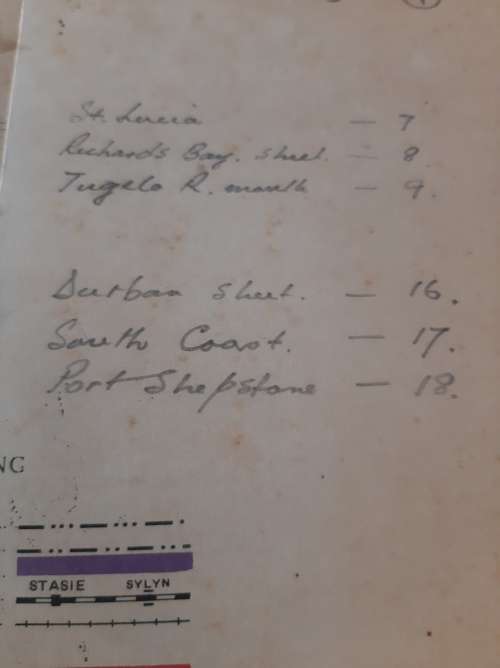 St. Lucia — 7
Richards Bay. sheet. — 8
Tugela R. mouth — 9.
Durban sheet. — 16.
South Coast. — 17.
Port Shepstone — 18.
NG
STASIE SYLYN